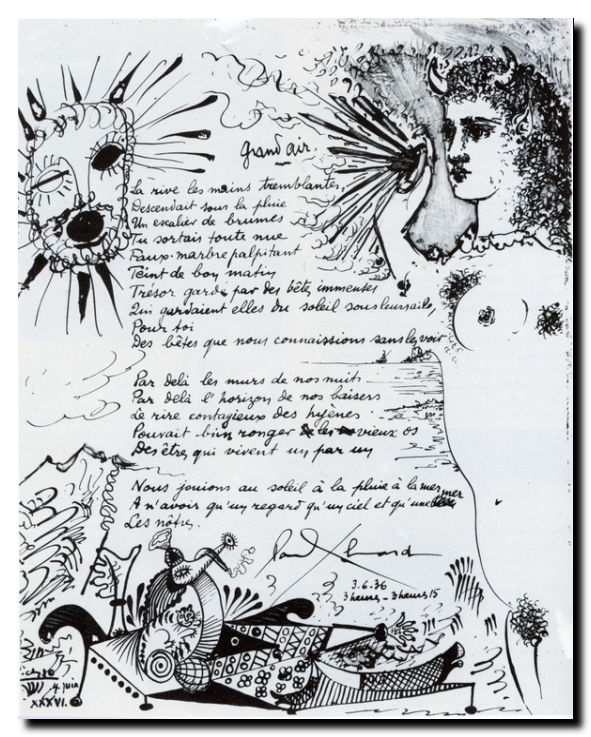 Grand air.
La rive les mains tremblantes,
Descendait sous la pluie
Un escalier de brumes
Tu sortais toute nue
Faux marbre palpitant
Teint de bon matin
Trésor gardé par des bêtes immenses
Qui gardaient elles du soleil sous leurs ailes,
Pour toi
Des bêtes que nous connaissions sans les voir
Par delà les murs de nos nuits
Par delà l'horizon de nos baisers
Le rire contagieux des hyènes
Pouvait bien ronger les vieux os
Des êtres qui vivent un par un
Nous jouions au soleil à la pluie à la mer
A n'avoir qu'un regard qu'un ciel et qu'une mer
Les nôtres.
Paul Eluard
3.6.36
3 heures - 3 heures 15
4 juin
XXXVI.